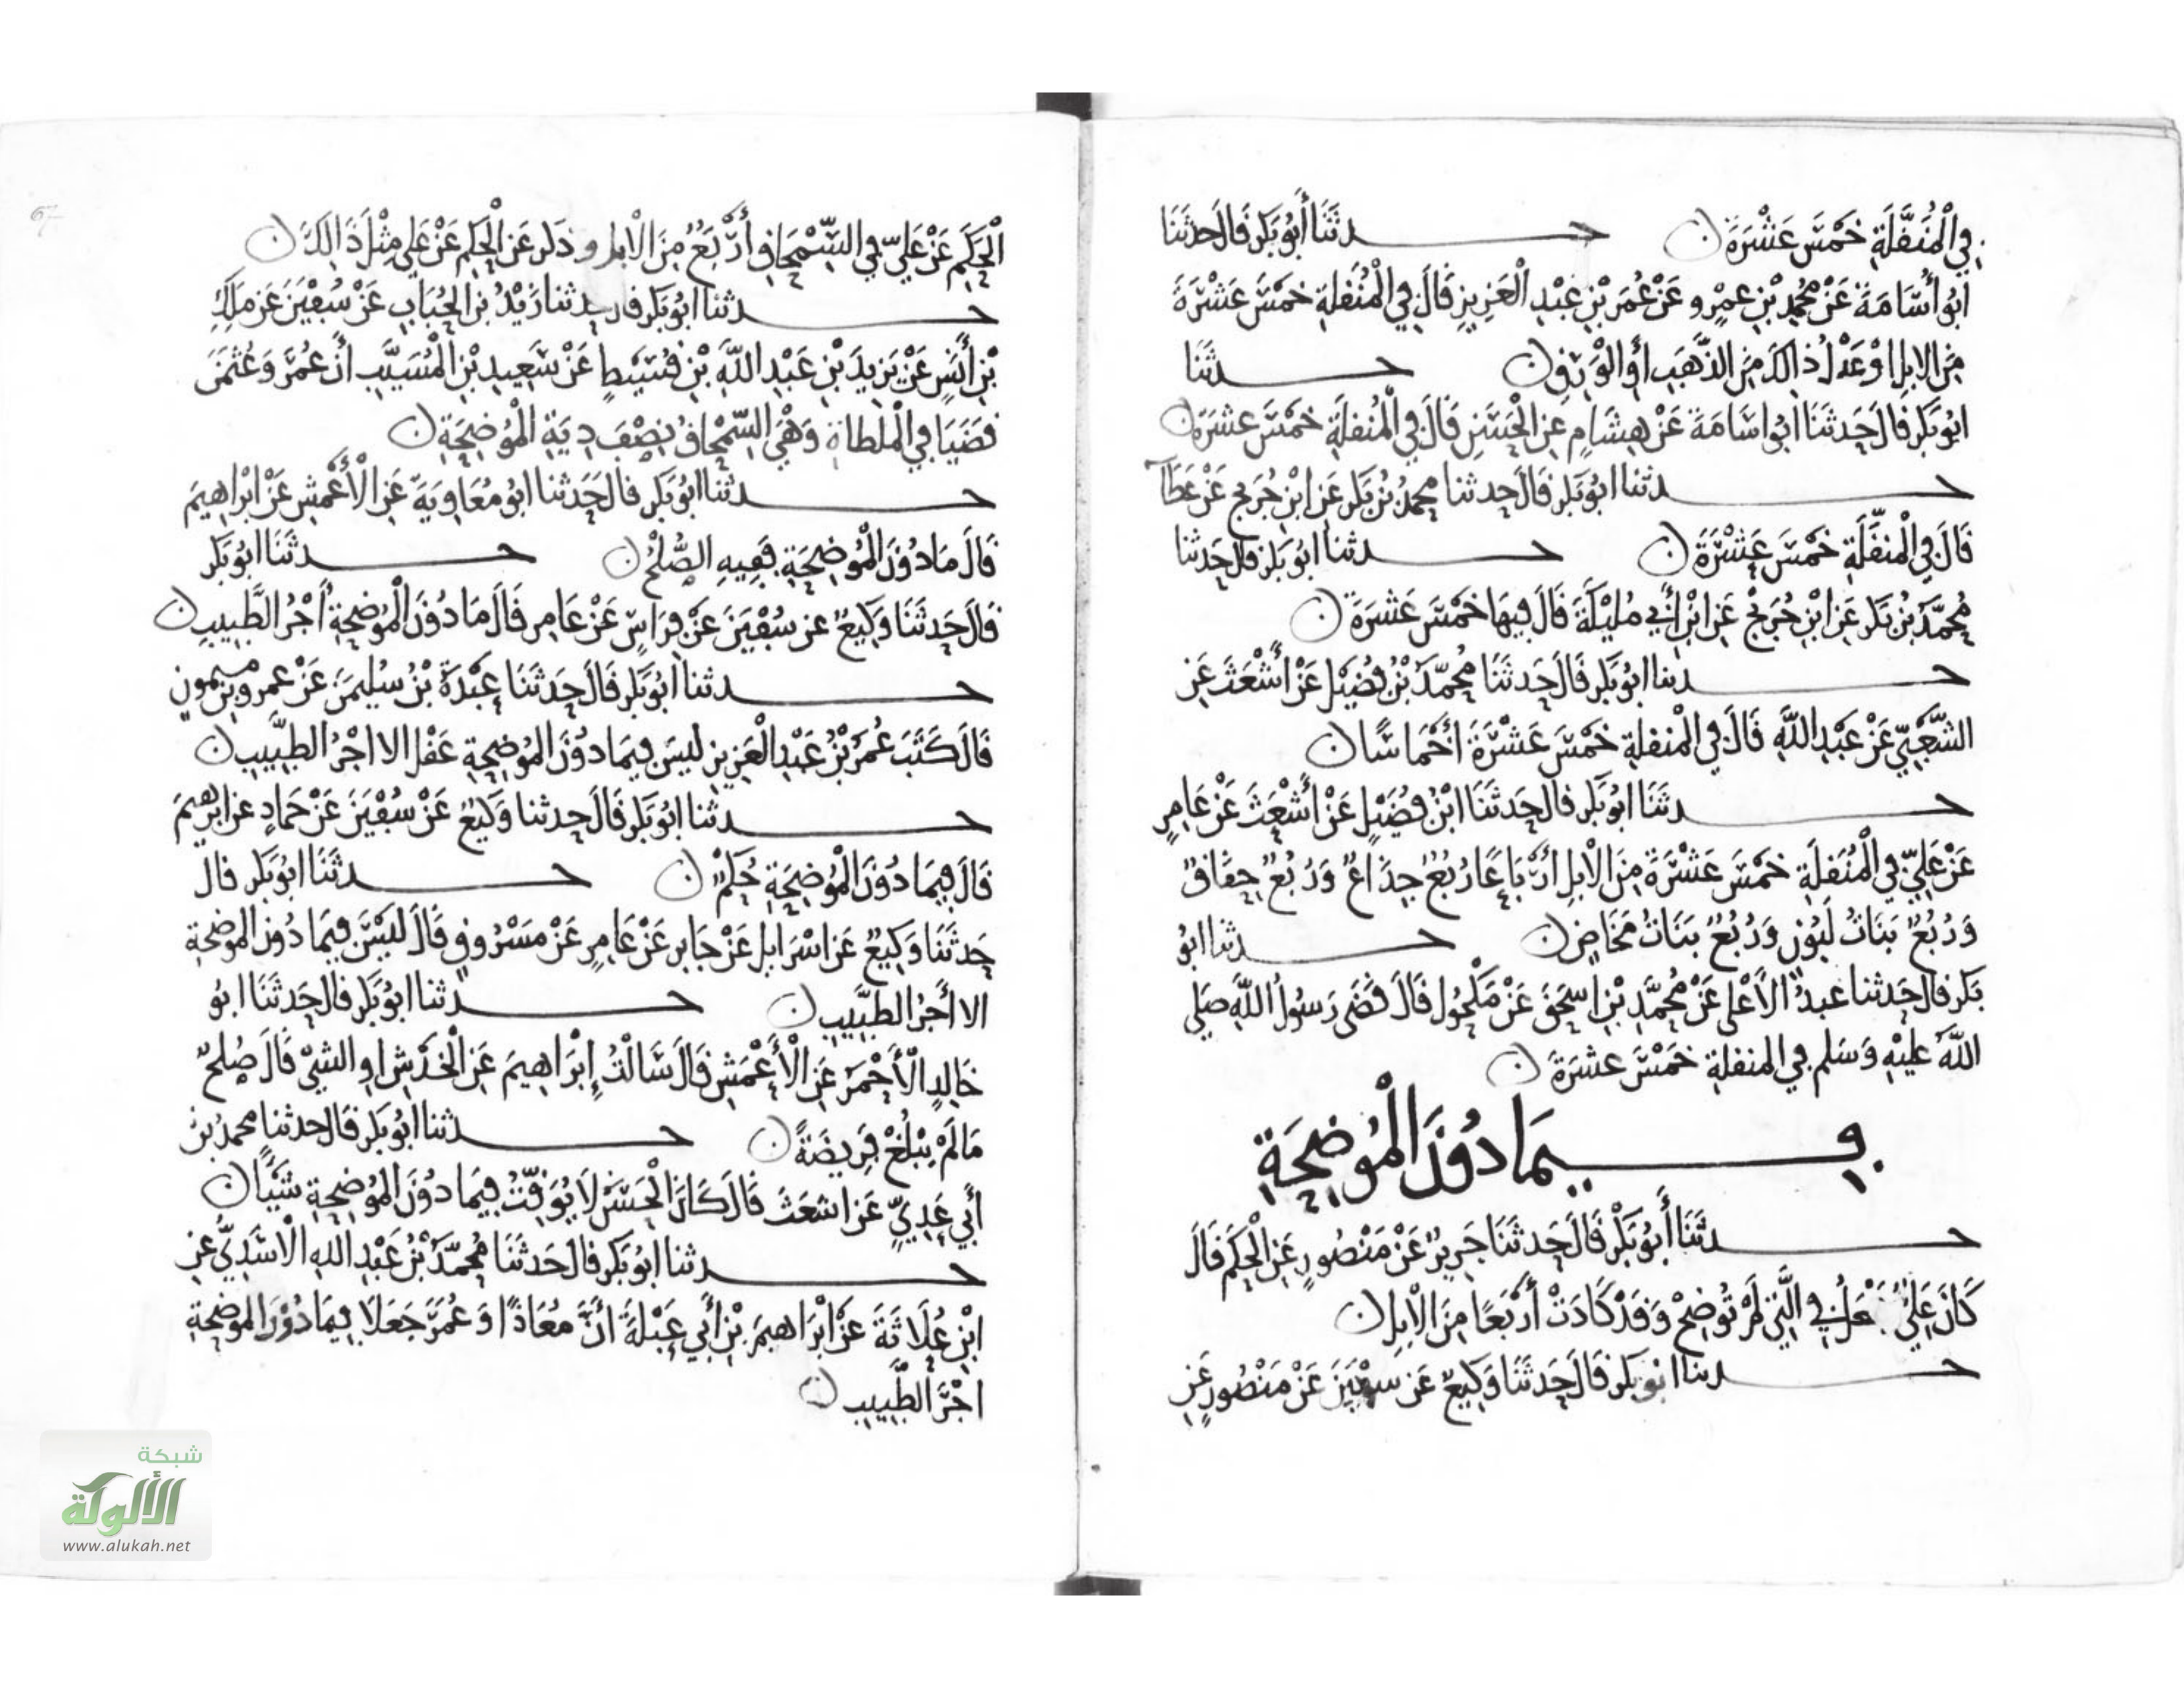 فِي الْمُنَقَّلَةِ خَمْسَ عَشْرَةَ ن حدثَنَا أَبُو بَكر قَالَ حَدثَنَا
ابُو أُسَامَةَ عَنْ مُحمدِ بْنِ عمرٍو عَنْ عُمَرَ بْنِ عَبْدِ الْعَزِيزِ قَالَ فِي الْمُنَقلَةِ خَمْسَ عَشْرَةَ
مِنَ الابِلِ اوْ عَدْلُ ذالكَ مِنَ الذَّهَبِ أَوِ الْوَرِقِ ن حدثَنَا
ابُو بَكر قَالَ حَدثَنَا ابُو اسَامَةَ عَنْ هِشَامٍ عَنِ الْحَسَنِ قَالَ فِي الْمُنقلَةِ خَمْسَ عشَرَةَ ن
حدثنا ابُو بَكر قَالَ حدثنا محمدُ بْنُ بَكر عَنِ ابْنِ جُرَيج عَنْ عَطَآ
قَالَ فِي الْمنقّلَةِ خَمْسَ عَشْرَةَ ن حدثنا ابُو بَكر قَالَ حَدثنا
مُحمَّدُ بْنُ بَكر عَنِ ابْنِ جُرَيْجٍ عَنِ ابْنِ أَبِي مُلَيْكَةَ قَالَ فِيهَا خَمْسَ عَشرَةَ ن
حدثنا ابُو بَكر قَالَ حَدثَنَا مُحمَّدُ بْنُ فُضَيْلٍ عَنْ أَشْعَثَ عَنِ
الشَّعْبِيِّ عَنْ عَبْدِ اللَّهِ قَالَ فِي الْمنقلةِ خَمْسَ عَشْرَةَ أَخْمَاسًا ن
حدثَنَا ابُو بَكر قَالَ حَدثَنَا ابْنُ فُضَيْلٍ عَنْ أَشْعَثَ عَنْ عَامِرٍ
عَنْ عَلِيٍّ فِي الْمُنَقلَةِ خَمْسَ عَشْرَةَ مِنَ الْابِلِ أَرْبَاعًا رُبْعٌ جِذَاعٌ وَرُبُعٌ حِقَاقٌ
وَرُبُعٌ بَنَاتُ لَبُونٍ وَرُبُعٌ بَنَاتُ مَخَاضٍ ن حدثنا ابُو
بَكر قَالَ حَدثنا عَبدُ الأَعْلَى عَنْ مُحمَّدِ بْنِ اسحَقَ عَنْ مَكْحُولٍ قَالَ قَضَى رَسُولُ اللَّهِ صَلى
اللَّهُ عَليْهِ وَسَلم فِي المنقلةِ خَمْسَ عشرَةَ ن
فِيمَا دُونَ الْمُوضِحَةِ
حدثَنَا أَبُو بَكْرٍ قَالَ حَدثَنَا جَرِيرٌ عَنْ مَنْصُورٍ عَنِ الْحكَمِ قَالَ
كَانَ عَلِيٌّ يَجْعَلُ فِي الَّتِي لَمْ تُوضِحْ وَقَدْ كَادَتْ أَرْبَعًا مِنَ الْابِلِ ن
حدثنا ابُو بَكر قَالَ حَدثَنَا وَكِيعٌ عَن سفْيَنَ عَنْ مَنْصُورٍ عَنِ
الْحكَمِ عَنْ عَلِيٍّ فِي السِّمْحَاقِ أَرْبَعٌ مِنَ الْابلِ وذكر عَنِ الْحكَمِ عَنْ عَلِي مِثْلَ ذَالِكَ ن
حدثنا ابُو بَكر قال حدثنا زَيْدُ بْنُ الحُبَابِ عَنْ سُفْيَنَ عَنْ مَلِكِ
بْنِ أَنَسٍ عَنْ يَزِيدَ بْنِ عَبْدِ اللَّهِ بْنِ قُسَيْطٍ عَنْ سَعِيدِ بْنِ الْمُسَيَّبِ أَنَّ عُمَرَ وَعُثْمَنَ
قَضَيَا فِي الْمِلطَاةِ وَهْيَ السِّمْحَاقُ بِنِصْفِ دِيَةِ الْمُوضِحَةِ ن
حدثنا ابُو بَكر قال حَدثنا ابُو مُعَاوِيَةَ عَنِ الْأَعْمَشِ عَنْ ابْرَاهِيمَ
قَالَ مَا دُونَ الْمُوضِحَةِ فَفِيهِ الصُّلْحُ ن حدثَنَا ابُو بَكر
قَالَ حَدثَنَا وَكِيعٌ عن سُفْيَنَ عَنْ فِرَاسٍ عَنْ عَامِر قَالَ مَا دُونَ الْمُوضحَةِ أَجْرُ الطَّبِيبِ ن
حدثنا ابُو بَكر قَالَ حَدثَنَا عَبْدَةُ بْنُ سُليمَنَ عَنْ عمرو بْنِ ميمونٍ
قَالَ كَتَبَ عُمَرُ بْنُ عَبْدِ الْعَزِيزِ ليسَ فِيمَا دُونَ المُوضِحةِ عَقْل الا اجْرُ الطبِيبِ ن
حدثنا ابُو بَكر قَالَ حدثنا وَكيعٌ عَنْ سُفْيَنَ عَنْ حَمادٍ عن ابرهيمَ
قَالَ فِيمَا دُونَ الْمُوضِحَةِ حُكْمٌ ن حدثَنَا ابُو بَكر قال
حَدثَنَا وَكِيعٌ عَن اسْرَايل عَنْ جَابر عَنْ عَامِرٍ عَنْ مَسْرُوقٍ قَالَ لَيْسَ فِيمَا دُونَ الموضحَة
الا أَجرُ الطبِيبِ ن حدثنا ابُو بَكر قال حَدثَنَا ابُو
خَالِدٍ الْأَحْمَرُ عَنِ الْأَعْمَشِ قَالَ سَالْتُ إِبْرَاهِيمَ عَنِ الْخَدْشِ اوِ الشيْ قَالَ صُلحٌ
مَا لَمْ يَبْلُغْ فَرِيضَةً ن حدثنا ابُو بَكر قَالَ حدثنا محمدُ بنُ
أَبِي عَدِيٍّ عَن اشعَثَ قَالَ كَانَ الْحَسَنُ لَا يُوَقِّتُ فِيمَا دُونَ المُوضِحةِ شَيْأً ن
حدثنا ابُو بَكر قَالَ حَدثَنَا مُحمَّدُ بْنُ عَبْدِ اللهِ الْاسَدِيُّ عنِ
ابْنِ عُلَاثَةَ عَنْ ابْرَاهيمَ بْنِ أَبِي عَبْلَةَ أَنَّ مُعَاذًا وَعُمَرَ جَعَلَا فِيمَا دُونَ الموضحَةِ
اجْرَ الطَّبِيبِ ن
شبكة
الألوكة
www.alukah.net